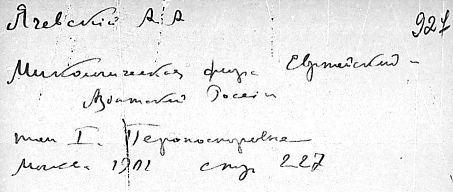 Ячевский А А
927
Микологическая флора Европейской и
Азиатской России
том I. Пероноспоровые
Москва 1901 стр 227